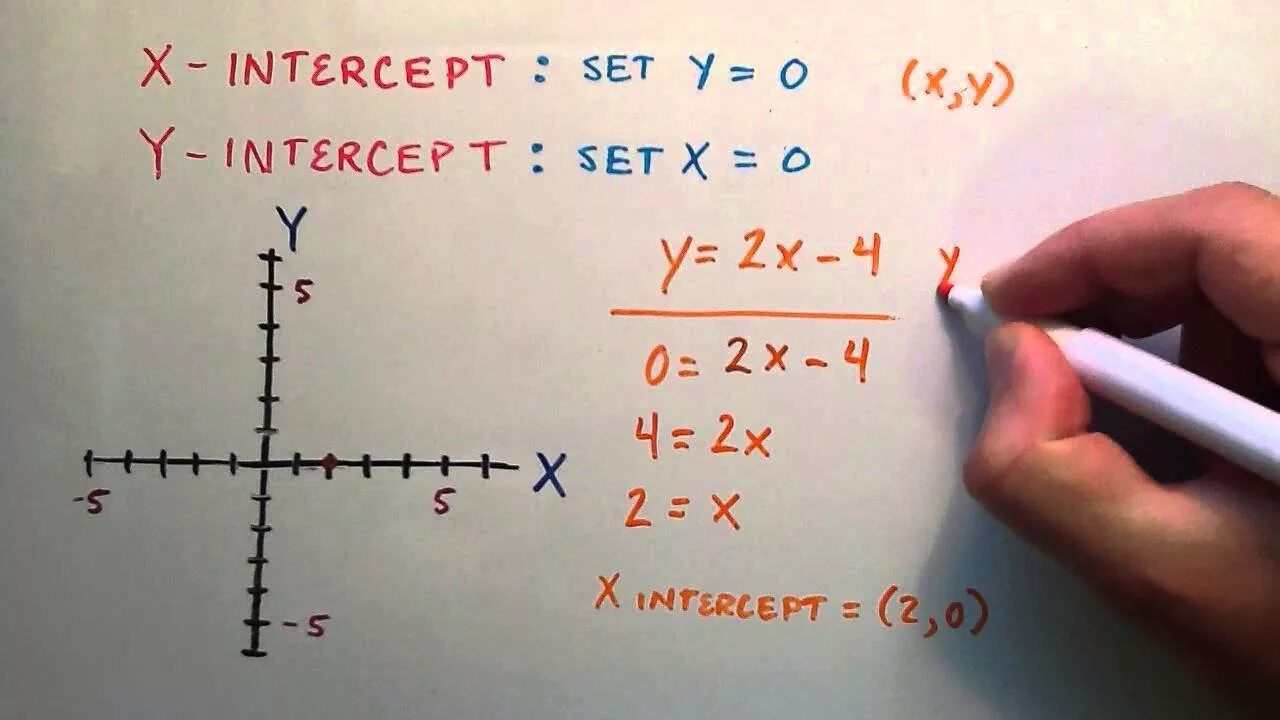 X - INTERCEPT : SET Y = 0 (X,Y)
Y - INTERCEPT : SET X = 0
Y
5
-5
5
X
-5
y = 2x - 4
0 = 2x - 4
4 = 2x
2 = x
X INTERCEPT = (2,0)
y